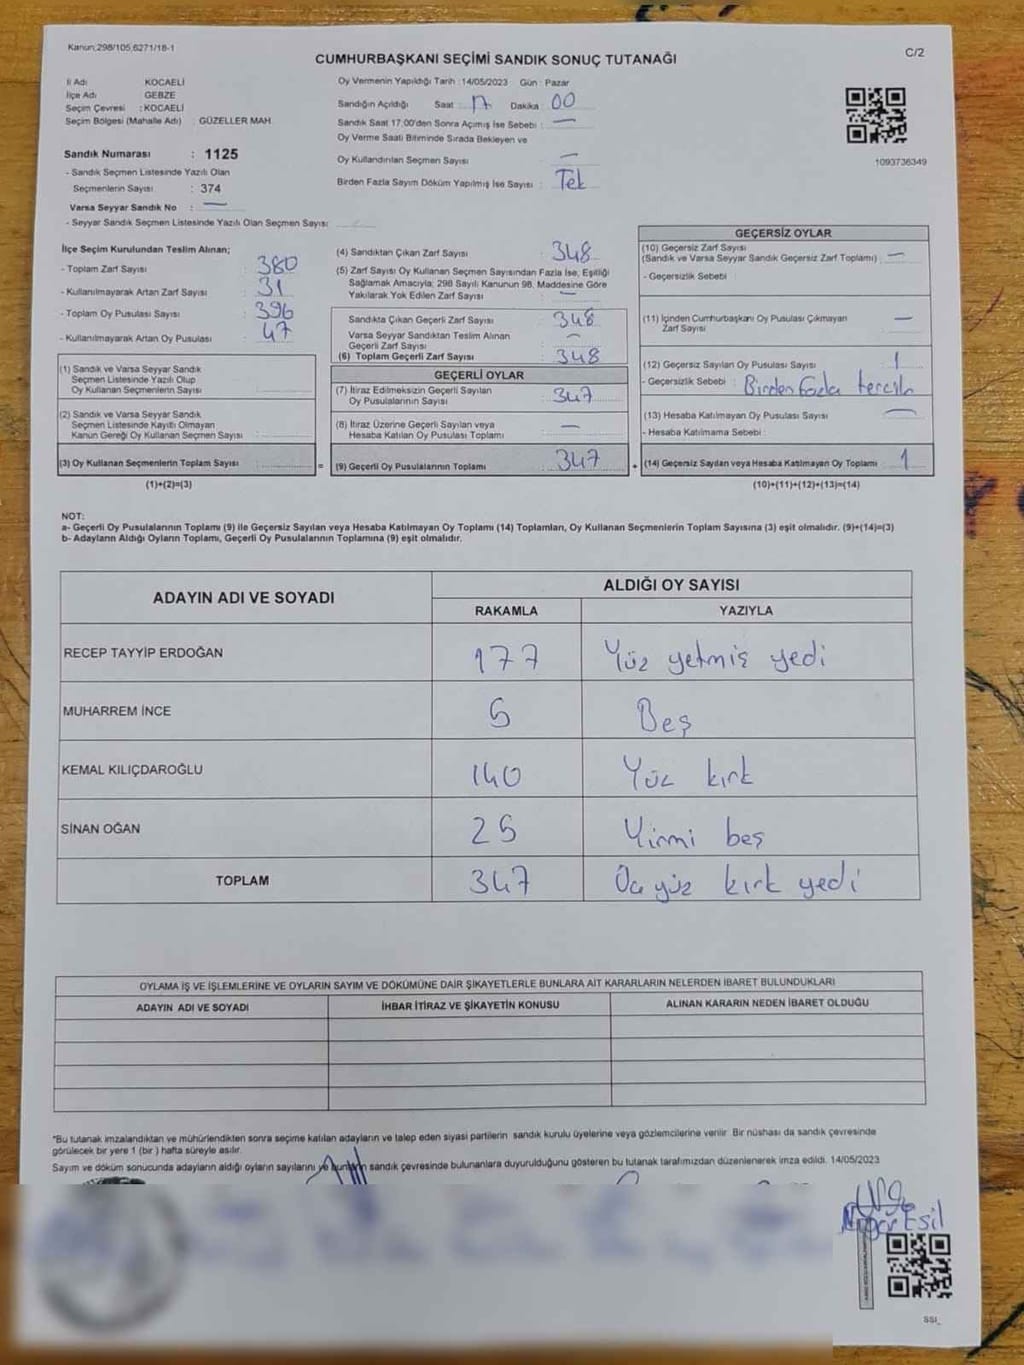 Kanun;298/105,6271/18-1
C/2
CUMHURBAŞKANI SEÇİMİ SANDIK SONUÇ TUTANAĞI
İl Adı KOCAELİ
İlçe Adı GEBZE
Seçim Çevresi : KOCAELİ
Seçim Bölgesi (Mahalle Adı) GÜZELLER MAH.
Sandık Numarası : 1125
- Sandık Seçmen Listesinde Yazılı Olan
Seçmenlerin Sayısı : 374
Varsa Seyyar Sandık No : —
- Seyyar Sandık Seçmen Listesinde Yazılı Olan Seçmen Sayısı
Oy Vermenin Yapıldığı Tarih : 14/05/2023 Gün : Pazar
Sandığın Açıldığı Saat 17 Dakika 00
Sandık Saat 17.00'den Sonra Açımış İse Sebebi : —
Oy Verme Saati Bitiminde Sırada Bekleyen ve
Oy Kullandırılan Seçmen Sayısı —
Birden Fazla Sayım Döküm Yapılmış İse Sayısı : Tek
1093736349
İlçe Seçim Kurulundan Teslim Alınan;
- Toplam Zarf Sayısı : 380
- Kullanılmayarak Artan Zarf Sayısı : 31
- Toplam Oy Pusulası Sayısı : 396
- Kullanılmayarak Artan Oy Pusulası : 47
(1) Sandık ve Varsa Seyyar Sandık
Seçmen Listesinde Yazılı Olup
Oy Kullanan Seçmen Sayısı
(2) Sandık ve Varsa Seyyar Sandık
Seçmen Listesinde Kayıtlı Olmayan
Kanun Gereği Oy Kullanan Seçmen Sayısı
(3) Oy Kullanan Seçmenlerin Toplam Sayısı
(1)+(2)=(3)
=
(4) Sandıktan Çıkan Zarf Sayısı : 348
(5) Zarf Sayısı Oy Kullanan Seçmen Sayısından Fazla İse, Eşitliği
Sağlamak Amacıyla; 298 Sayılı Kanunun 98. Maddesine Göre
Yakılarak Yok Edilen Zarf Sayısı : —
Sandıkta Çıkan Geçerli Zarf Sayısı : 348
Varsa Seyyar Sandıktan Teslim Alınan
Geçerli Zarf Sayısı : —
(6) Toplam Geçerli Zarf Sayısı : 348
GEÇERLİ OYLAR
(7) İtiraz Edilmeksizin Geçerli Sayılan
Oy Pusulalarının Sayısı : 347
(8) İtiraz Üzerine Geçerli Sayılan veya
Hesaba Katılan Oy Pusulası Toplamı : —
(9) Geçerli Oy Pusulalarının Toplamı : 347
+
GEÇERSİZ OYLAR
(10) Geçersiz Zarf Sayısı
(Sandık ve Varsa Seyyar Sandık Geçersiz Zarf Toplamı) : —
- Geçersizlik Sebebi :
(11) İçinden Cumhurbaşkanı Oy Pusulası Çıkmayan
Zarf Sayısı : —
(12) Geçersiz Sayılan Oy Pusulası Sayısı : 1
- Geçersizlik Sebebi : Birden fazla tercih
(13) Hesaba Katılmayan Oy Pusulası Sayısı : —
- Hesaba Katılmama Sebebi :
(14) Geçersiz Sayılan veya Hesaba Katılmayan Oy Toplamı : 1
(10)+(11)+(12)+(13)=(14)
NOT:
a- Geçerli Oy Pusulalarının Toplamı (9) ile Geçersiz Sayılan veya Hesaba Katılmayan Oy Toplamı (14) Toplamları, Oy Kullanan Seçmenlerin Toplam Sayısına (3) eşit olmalıdır. (9)+(14)=(3)
b- Adayların Aldığı Oyların Toplamı, Geçerli Oy Pusulalarının Toplamına (9) eşit olmalıdır.
ADAYIN ADI VE SOYADI
ALDIĞI OY SAYISI
RAKAMLA YAZIYLA
RECEP TAYYİP ERDOĞAN 177 Yüz yetmiş yedi
MUHARREM İNCE 5 Beş
KEMAL KILIÇDAROĞLU 140 Yüz kırk
SİNAN OĞAN 25 Yirmi beş
TOPLAM 347 Üç yüz kırk yedi
OYLAMA İŞ VE İŞLEMLERİNE VE OYLARIN SAYIM VE DÖKÜMÜNE DAİR ŞİKAYETLERLE BUNLARA AİT KARARLARIN NELERDEN İBARET BULUNDUKLARI
ADAYIN ADI VE SOYADI İHBAR İTİRAZ VE ŞİKAYETİN KONUSU ALINAN KARARIN NEDEN İBARET OLDUĞU
*Bu tutanak imzalandıktan ve mühürlendikten sonra seçime katılan adayların ve talep eden siyasi partilerin sandık kurulu üyelerine veya gözlemcilerine verilir. Bir nüshası da sandık çevresinde
görülecek bir yere 1 (bir) hafta süreyle asılır.
Sayım ve döküm sonucunda adayların aldığı oyların sayılarını ve bunların sandık çevresinde bulunanlara duyurulduğunu gösteren bu tutanak tarafımızdan düzenlenerek imza edildi. 14/05/2023
SSI_